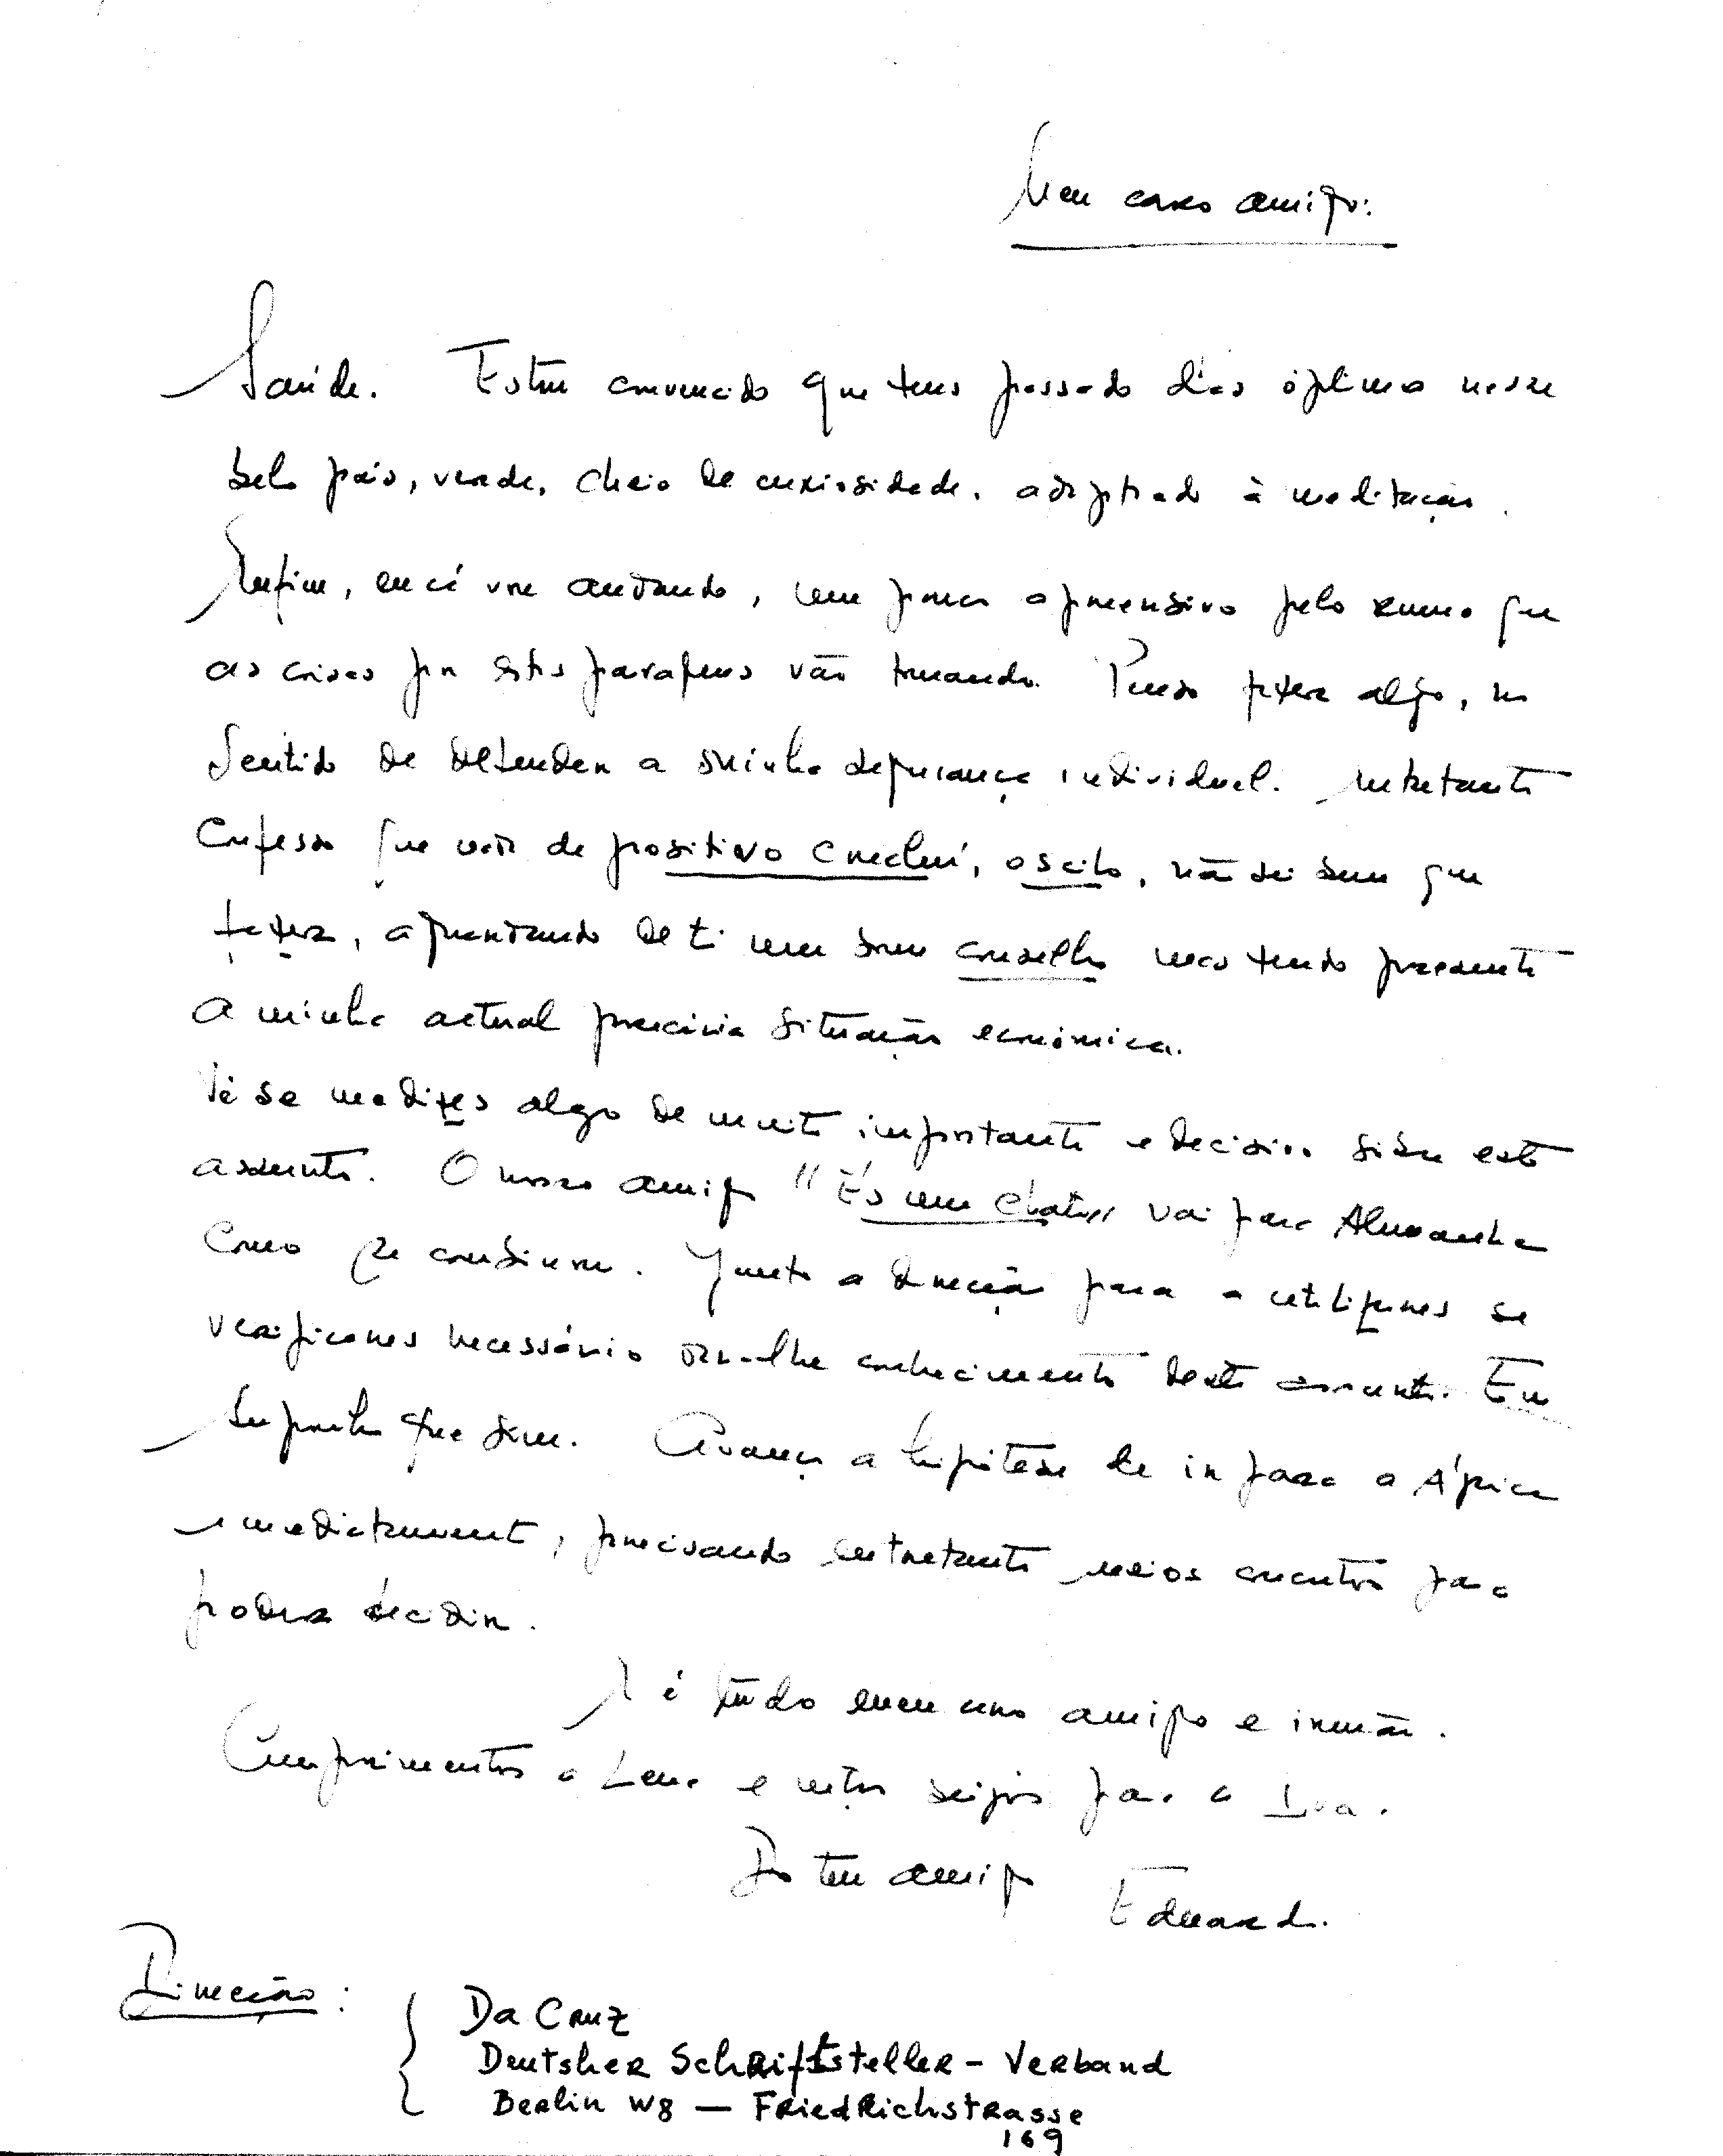 Meu caro amigo:
Saúde. Estou convencido que tens passado dias óptimos nesse
belo país, verde, cheio de curiosidade, adoptado à meditação.
Enfim, eu cá vou andando, um pouco apreensivo pelo rumo que
as coisas por estas paragens vão tomando. Penso fazer algo, no
sentido de defender a minha segurança individual. Entretanto
confesso que nada de positivo conclui, oscilo, não sei bem que
fazer, aguardando de ti um bom conselho mas tendo presente
a minha actual precária situação económica.
Vê se me dizes algo de muito importante e decisivo sobre este
assunto. O nosso amigo "És um chato" vai para Alemanha
como se combinou. Junto a direcção para a utilizares se
verificares necessário dar-lhe conhecimento deste assunto. Eu
suponho que sim. Avanço a hipótese de ir para a África
imediatamente, precisando entretanto meios concretos para
poder decidir.
E é tudo meu caro amigo e irmão.
Cumprimentos a Lena e mtos beijos para a Iva.
Do teu amigo Eduardo.
Direcção:
Da Cruz
Deutsher Schriftsteller - Verband
Berlin W8 — Friedrichstrasse
169